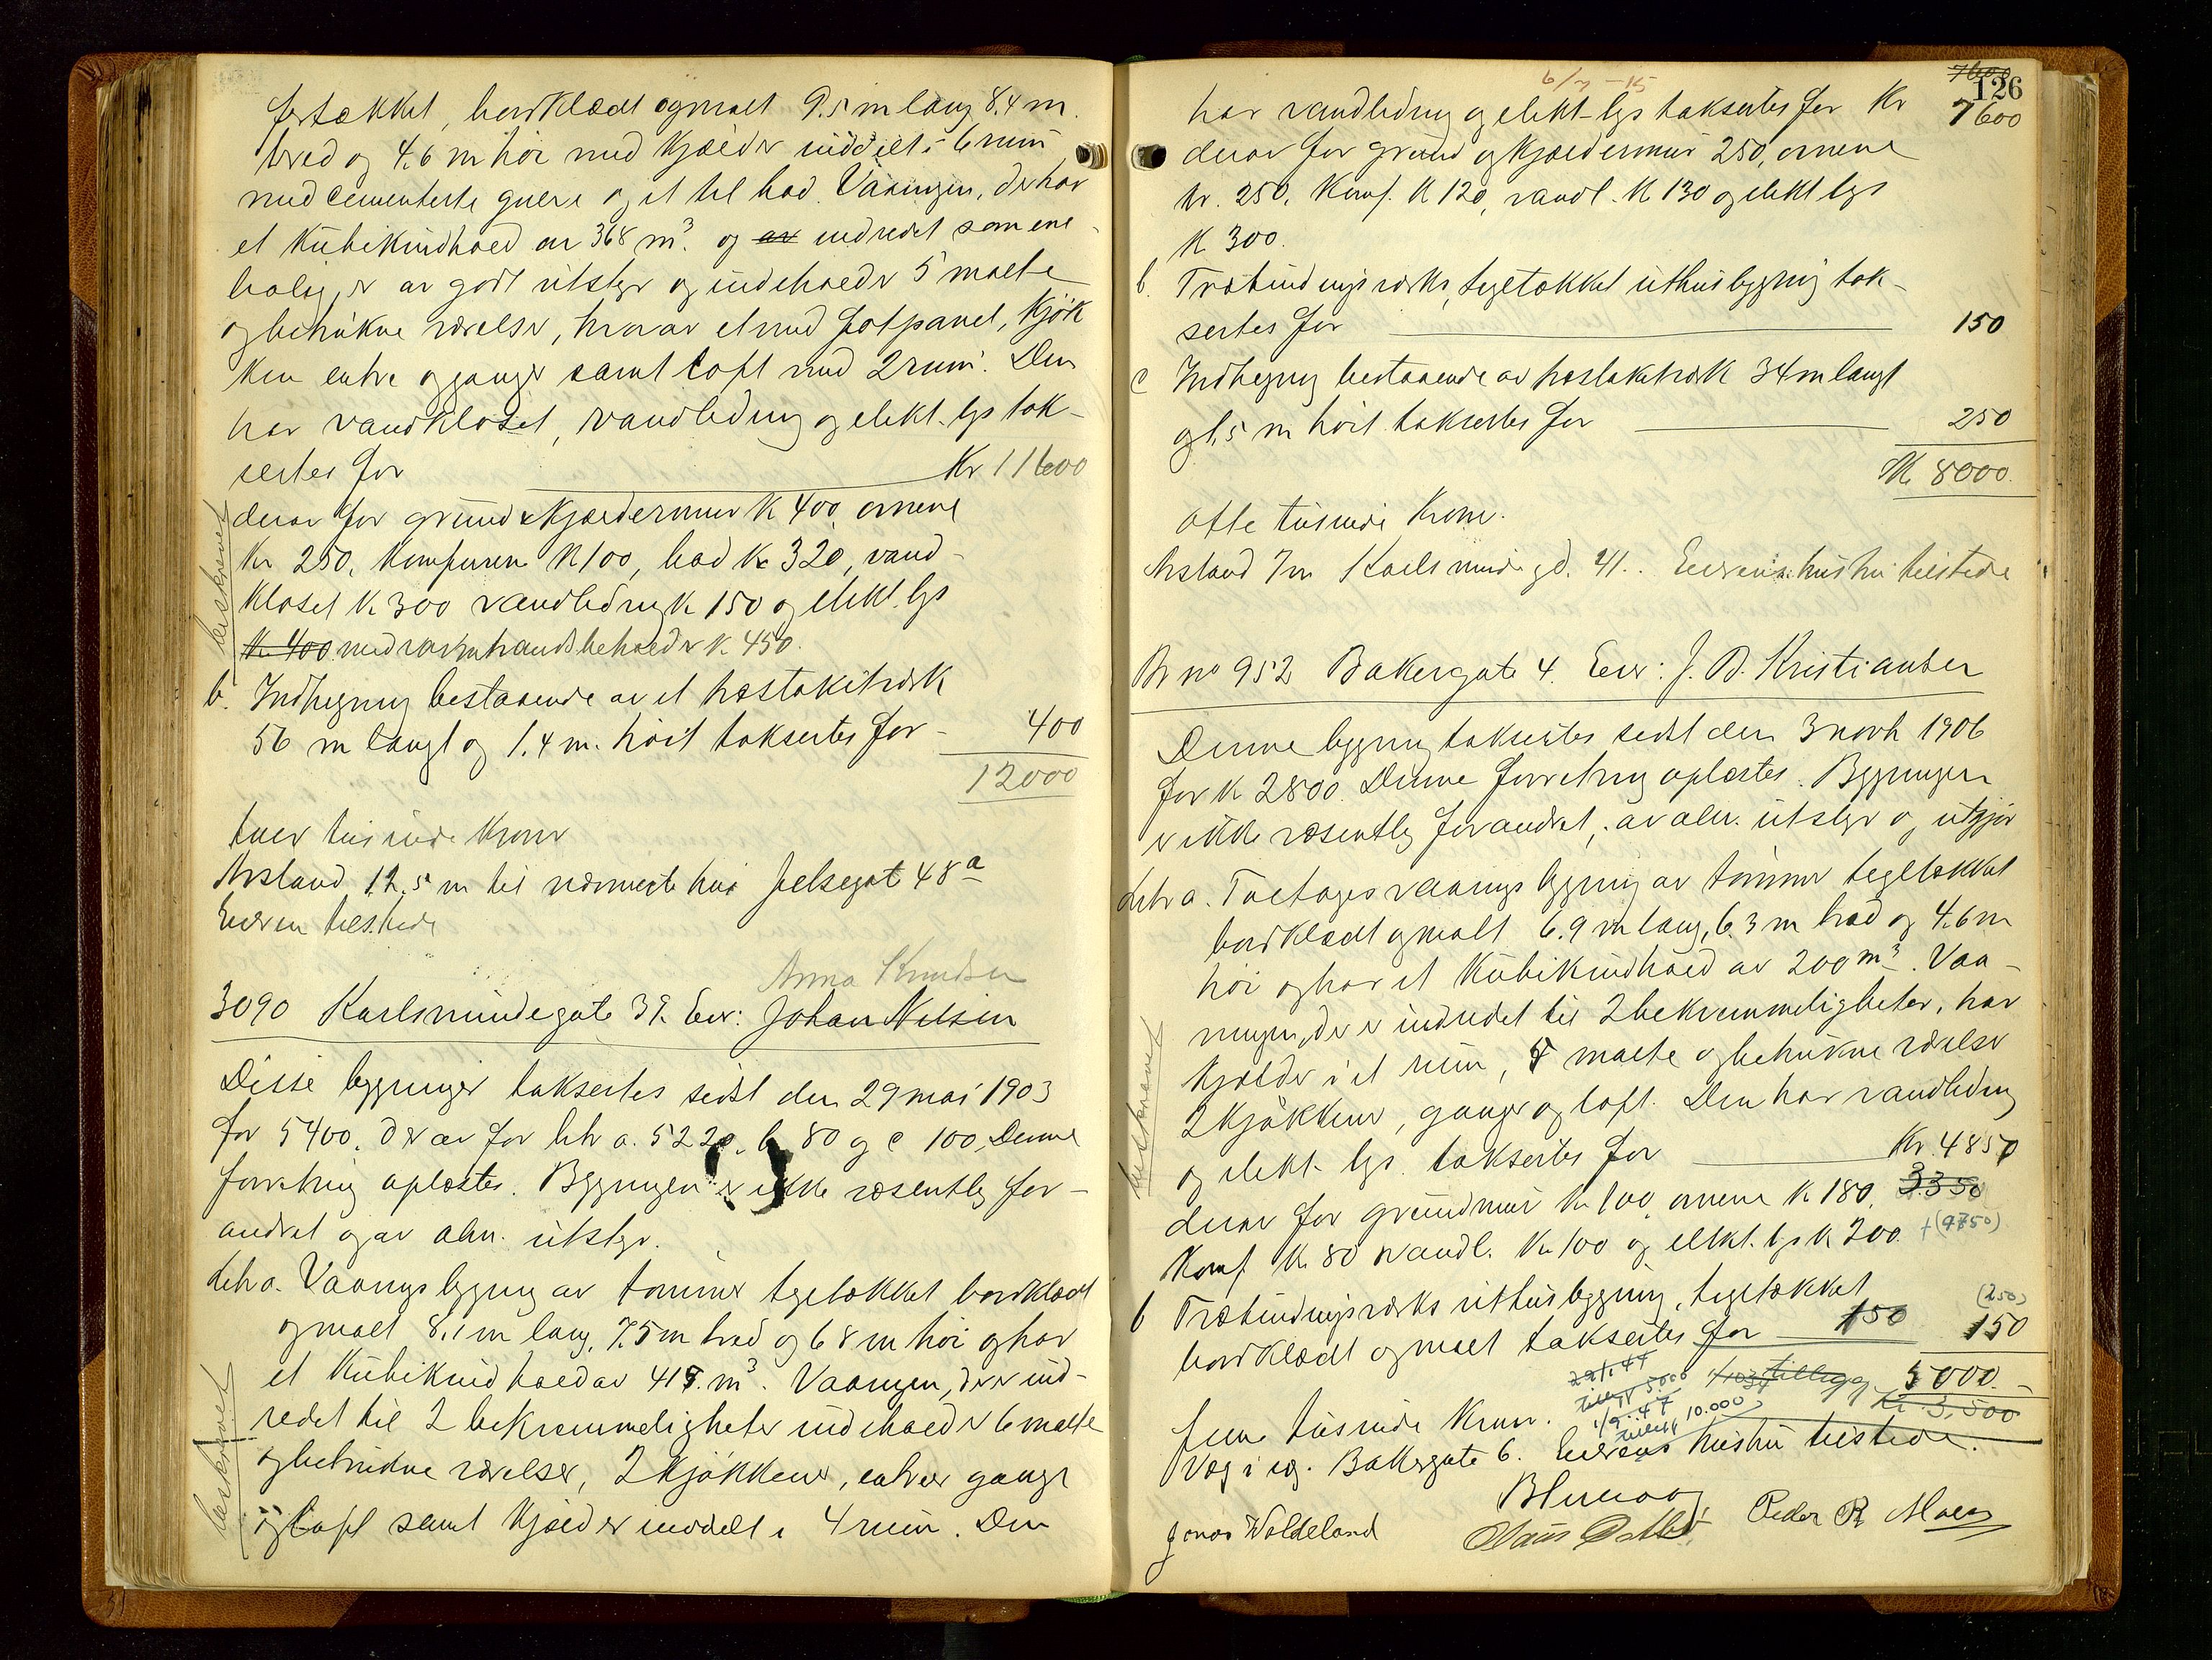 fertækket, bordklædt og malt 9.5 m lang 8.4 m.
bred og 4.6 m höi med kjælder inddelt i 6 rum
med cementerte gulve og et til bad. Vaaningen, der har
et kubikindhold av 368 m³. og av indredet som ene-
bolig, er av godt utstyr og indeholder 5 malte
og betrukne værelser, hvorav et med fotpanel, kjök
ken entre og ganger samt loft med 2 rum. Den
har vandkloset, vandledning og elekt. lys tak-
sertes for Kr 11600
derav for grund & kjældermur K 400, ovnene
Kr 250, komfuren K 100, bad Kr 320, vand-
kloset K 300 vandledning K 150 og elekt. lys
Kr 400 med varmtvandsbeholder K 450.
b. Indhegning bestaaende av et hæstakitværk
56 m langt og 1.4 m. höit taksertes for - 400
12000
tolv tusinde Kroner
Avstand 12.5 m til nærmeste hus Jelsegat 48 a
Eieren tilstede
Anna Knudsen
3090 Karlsmindegate 39. Eier: Johan Nilsen
Disse bygninger taksertes sidst den 29 mai 1903
for 5400. Derav for litr a. 5220, b 80 og c 100. Denne
forretning oplæstes. Bygningen er ikke væsentlig for-
andret og av alm. utstyr.
Litr a. Vaaningsbygning av tömmer tegltækket bordklædt
og malt 8.1 m lang, 7.5 m bred og 6 8 m höi og har
et kubikindhold av 415 m³. Vaaningen, der er ind-
redet til 2 bekvemmeligheter indeholder 6 malte
og betrukne værelser, 2 kjökkener, entreer ganger
og loft samt kjælder inddelt i 4 rum. Den
beskrevet
beskrevet
6/7 - 15
7600
126
har vandledning og elekt- lys taksertes for Kr 7600
derav for grund og kjældermur 250, ovnene
kr. 250, komf. K 120, vandl. K 130 og elekt lys
K 300.
b. Træbindingsverks, tegltækket uthusbygning tak-
sertes for 150
c Indhegning bestaaende av hæstakitværk 34 m langt
og 1,5 m höit taksertes for 250
Kr 8000.
otte tusinde Kroner.
Avstand 7 m Karlsmindegd. 41. Eierens hustru tilstede
Br no 952 Bakergate 4. Eier: J. D. Kristiansen
Denne bygning taksertes sidst den 3 novb 1906
for K 2800. Denne forretning oplæstes. Bygningen
er ikke væsentlig forandret, av alm. utstyr og utgjör
Litr a. Toetages vaaningsbygning av tömmer tegltækket
bordklædt og malt 6.9 m lang, 6.3 m bred og 4.6 m
höi og har et kubikindhold av 200 m³. Vaa-
ningen, der er indredet til 2 bekvemmeligheter, har
kjælder i et rum, 5 malte og betrukne værelser
2 kjökkener, ganger og loft. Den har vandledning
og elekt- lys. taksertes for Kr. 4850
derav for grundmur kr 100, ovnene K 180. 3350
komf K 80 vandl. Kr 100 og elekt. lys K 200. +(9750)
b Træbindingsverks uthusbygning, tegltækket (250)
bordklædt og malt taksertes for 150 150
tillegg 5000.-
Kr. 3,500
tillegg 5000
1/9.47
tillegg 10.000
fem tusinde Kroner.
Væg i væg. Bakergate 6. Eierens hustru tilstede.
beskrevet
Jonas Woldeland
Peder R